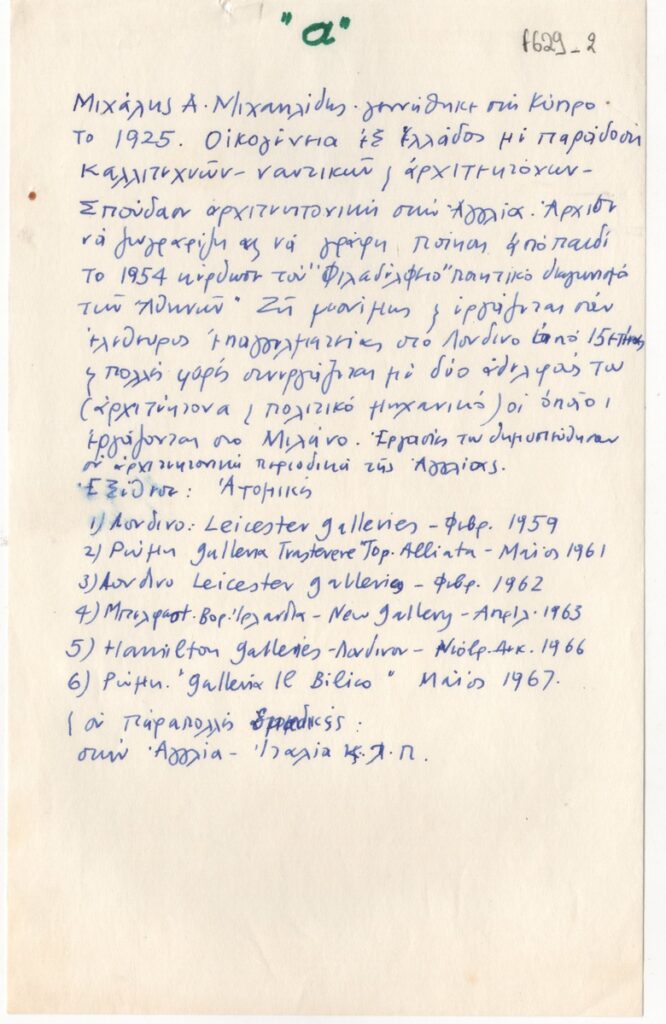 "α"
f629_2
Μιχάλης Α. Μιχαηλίδης. γεννήθηκε στή Κύπρο.
το 1925. Οἰκογένεια ἐξ Ἑλλάδος μέ παράδοση
καλλιτεχνῶν - ναυτικῶν ϗ ἀρχιτεκτόνων -
Σπούδασε ἀρχιτεκτονική στήν Ἀγγλία. Ἄρχισε
νά ζωγραφίζη ϗ νά γράφη ποίηση ἀπό παιδί
Το 1954 κέρδισε τον "Φιλαδέλφειο" ποιητικό διαγωνισμό
τῶν Ἀθηνῶν. Ζῆ μονίμως ϗ ἐργάζεται σάν
ἐλεύθερος ἐπαγγελματίας στο Λονδίνο ἀπό 15ετίας
ϗ πολλές φορές συνεργάζεται μέ δύο ἀδελφούς του
(ἀρχιτέκτονα ϗ πολιτικό μηχανικό) οἱ ὁποῖοι
ἐργάζονται στο Μιλάνο. Ἐργασίες του δημοσιεύθησαν
σέ ἀρχιτεκτονικά περιοδικά τῆς Ἀγγλίας.
Ἐξέθεσε: Ἀτομικές
1) Λονδίνο: Leicester galleries - Φεβρ. 1959
2) Ρώμη galleria Trastevere Τορ. Alliata - Μάϊος 1961
3) Λονδίνο Leicester galleries - Φεβρ. 1962
4) Μπελφαστ. Βορ. Ἰρλανδία - New gallery - Απριλ. 1963
5) Hamilton galleries - Λονδίνον - Νοέβρ. Δεκ. 1966
6) Ρώμη. "galleria Il Bilico" Μάϊος 1967.
ϗ σέ πάρα πολλές ὁμαδικές:
στήν Ἀγγλία - Ἰταλία κ.λ.π.